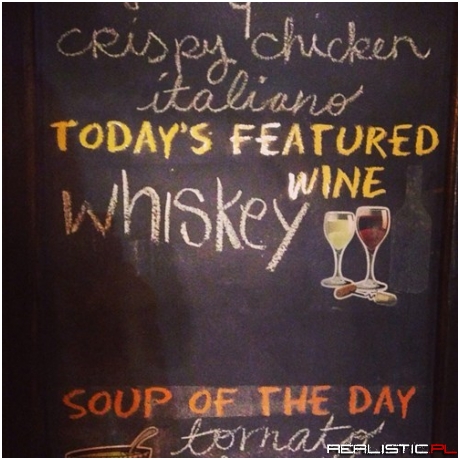 crispy chicken
italiano
TODAY'S FEATURED
WINE
whiskey
SOUP OF THE DAY
tomato
REALISTIC.PL